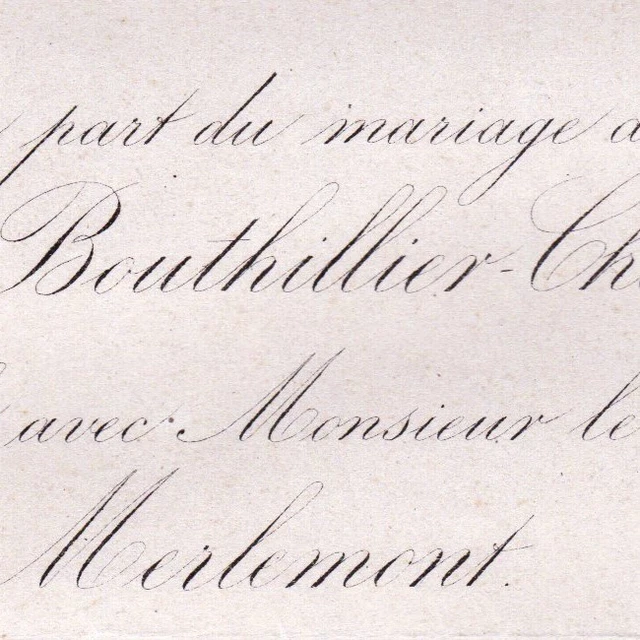 part du mariage d
Bouthillier-Ch
avec Monsieur le
Merlemont.